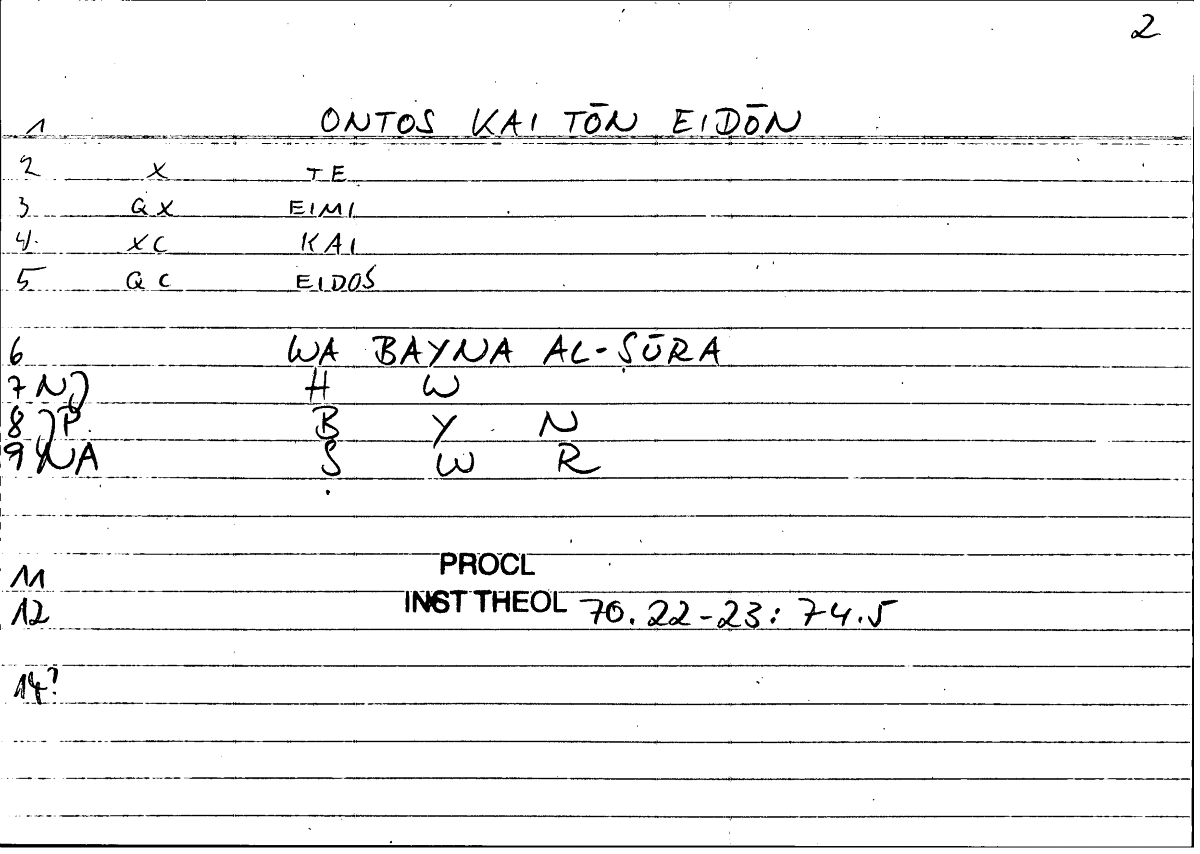 2
1 ONTOS KAI TŌN EIDŌN
2 X TE
3 QX EIMI
4. XC KAI
5 QC EIDOS
6 WA BAYNA AL-ṢŪRA
7 N) H W
8 )P. B Y N
9 NA Ṣ W R
11 PROCL
12 INST THEOL 70.22-23: 74.5
14?